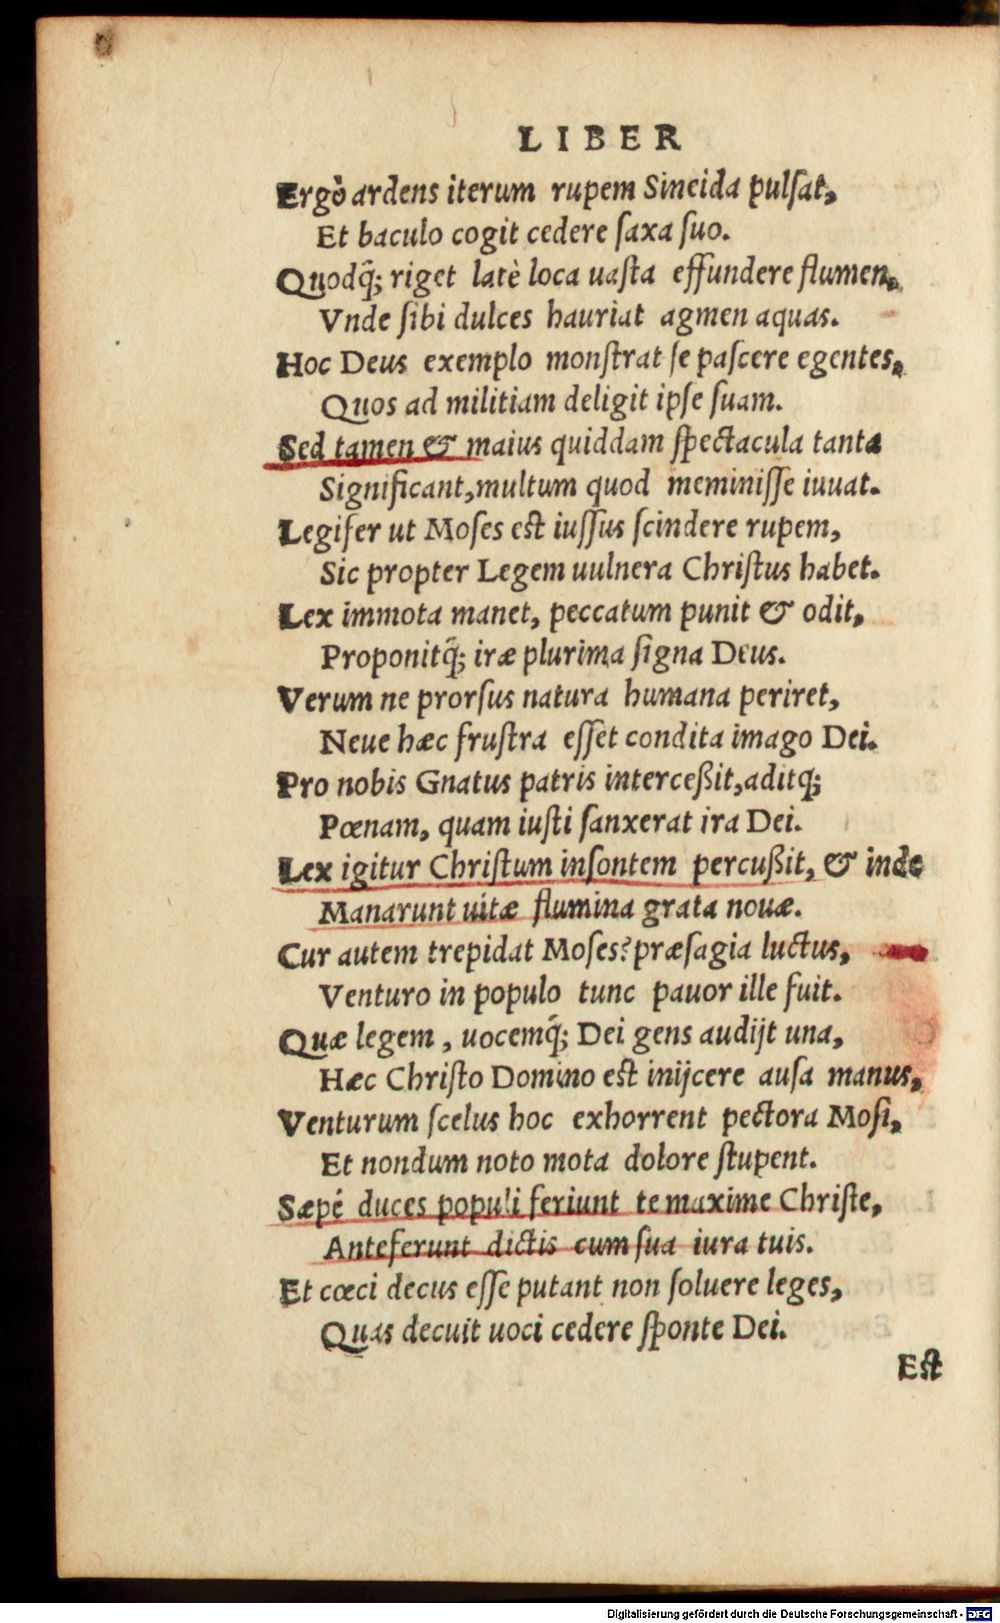 LIBER
Ergò ardens iterum rupem Sineida pulſat,
Et baculo cogit cedere ſaxa ſuo.
Quodq̃; riget latè loca uaſta effundere flumen,
Vnde ſibi dulces hauriat agmen aquas.
Hoc Deus exemplo monſtrat ſe paſcere egentes,
Quos ad militiam deligit ipſe ſuam.
Sed tamen & maius quiddam ſpectacula tanta
Significant, multum quod meminiſſe iuuat.
Legifer ut Moſes eſt iuſſus ſcindere rupem,
Sic propter Legem uulnera Chriſtus habet.
Lex immota manet, peccatum punit & odit,
Proponitq̃; iræ plurima ſigna Deus.
Verum ne prorſus natura humana periret,
Neue hæc fruſtra eſſet condita imago Dei.
Pro nobis Gnatus patris interceßit, aditq;
Pœnam, quam iuſti ſanxerat ira Dei.
Lex igitur Chriſtum inſontem percußit, & inde
Manarunt uitæ flumina grata nouæ.
Cur autem trepidat Moſes? præſagia luctus,
Venturo in populo tunc pauor ille fuit.
Quæ legem, uocemq̃; Dei gens audijt una,
Hæc Chriſto Domino eſt inijcere auſa manus,
Venturum ſcelus hoc exhorrent pectora Moſi,
Et nondum noto mota dolore ſtupent.
Sæpé duces populi feriunt te maxime Chriſte,
Anteferunt dictis cum ſua iura tuis.
Et cœci decus eſſe putant non ſoluere leges,
Quas decuit uoci cedere ſponte Dei.
Eſt
Digitalisierung gefördert durch die Deutsche Forschungsgemeinschaft - DFG